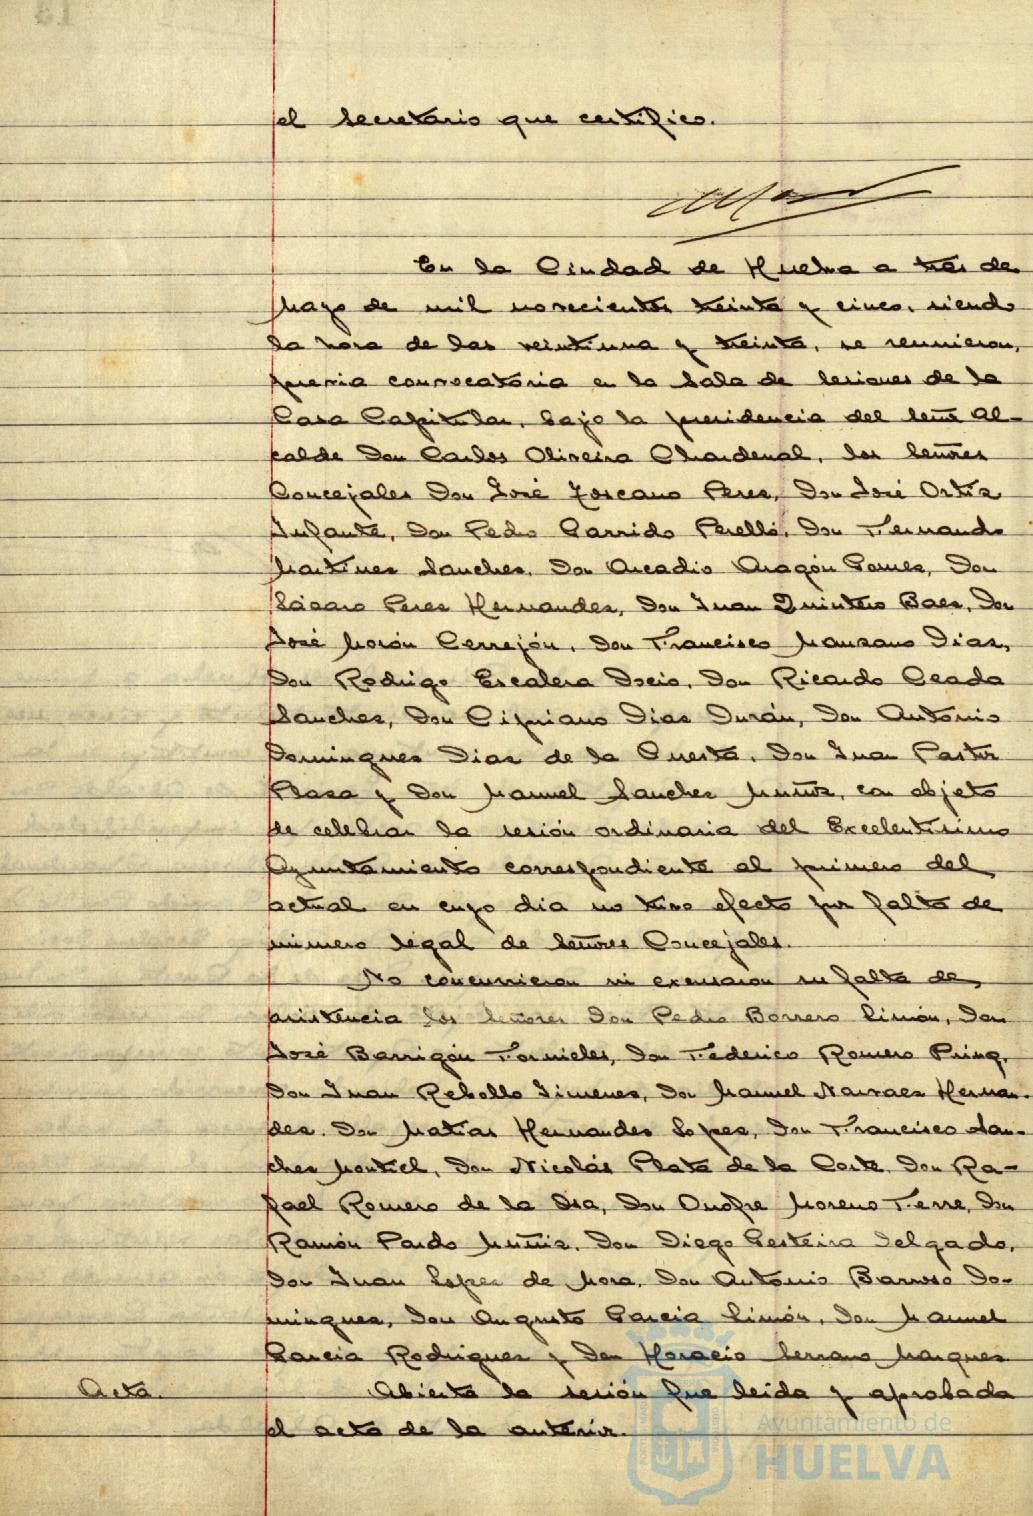 el Secretario que certifico.
En la Ciudad de Huelva a tres de
Mayo de mil novecientos treinta y cinco, siendo
la hora de las veintiuna y treinta, se reunieron,
previa convocatoria en la Sala de Sesiones de la
Casa Capitular, bajo la presidencia del Señor Al-
calde Don Carlos Oliveira Chardenal, los Señores
Concejales Don José Toscano Peres, Don José Ortiz
Infante, Don Pedro Garrido Perelló, Don Fernando
Martines Sanches, Don Arcadio Aragón Gomes, Don
Lásaro Peres Hernandes, Don Juan Quintero Baes, Don
José Morón Cerrejón, Don Francisco Mansano Dias,
Don Rodrigo Escalera Docio, Don Ricardo Ceada
Sanches, Don Cipriano Dias Durán, Don Antonio
Domingues Dias de la Cuesta, Don Juan Pastor
Plasa y Don Manuel Sanches Muñoz, con objeto
de celebrar la sesión ordinaria del Excelentisimo
Ayuntamiento correspondiente al primero del
actual en cuyo dia no tuvo efecto por falta de
número legal de Señores Concejales.
No concurrieron ni excusaron su falta de
asistencia los Señores Don Pedro Borrero Limón, Don
José Barrigón Fornieles, Don Federico Romero Pring,
Don Juan Rebollo Jimenes, Don Manuel Narvaes Hernan-
des, Don Matias Hernandes Lopes, Don Francisco San-
ches Montiel, Don Nicolás Plata de la Corte, Don Ra-
fael Romero de la Osa, Don Onofre Moreno Terre, Don
Ramón Pardo Muñiz, Don Diego Gesteira Delgado,
Don Juan Lopes de Mora, Don Antonio Barroso Do-
mingues, Don Augusto Garcia Limón, Don Manuel
Garcia Rodrigues y Don Horacio Serrano Marques
Acta. Abierta la sesión fue leida y aprobada
el acta de la anterior.
Ayuntamiento de
HUELVA